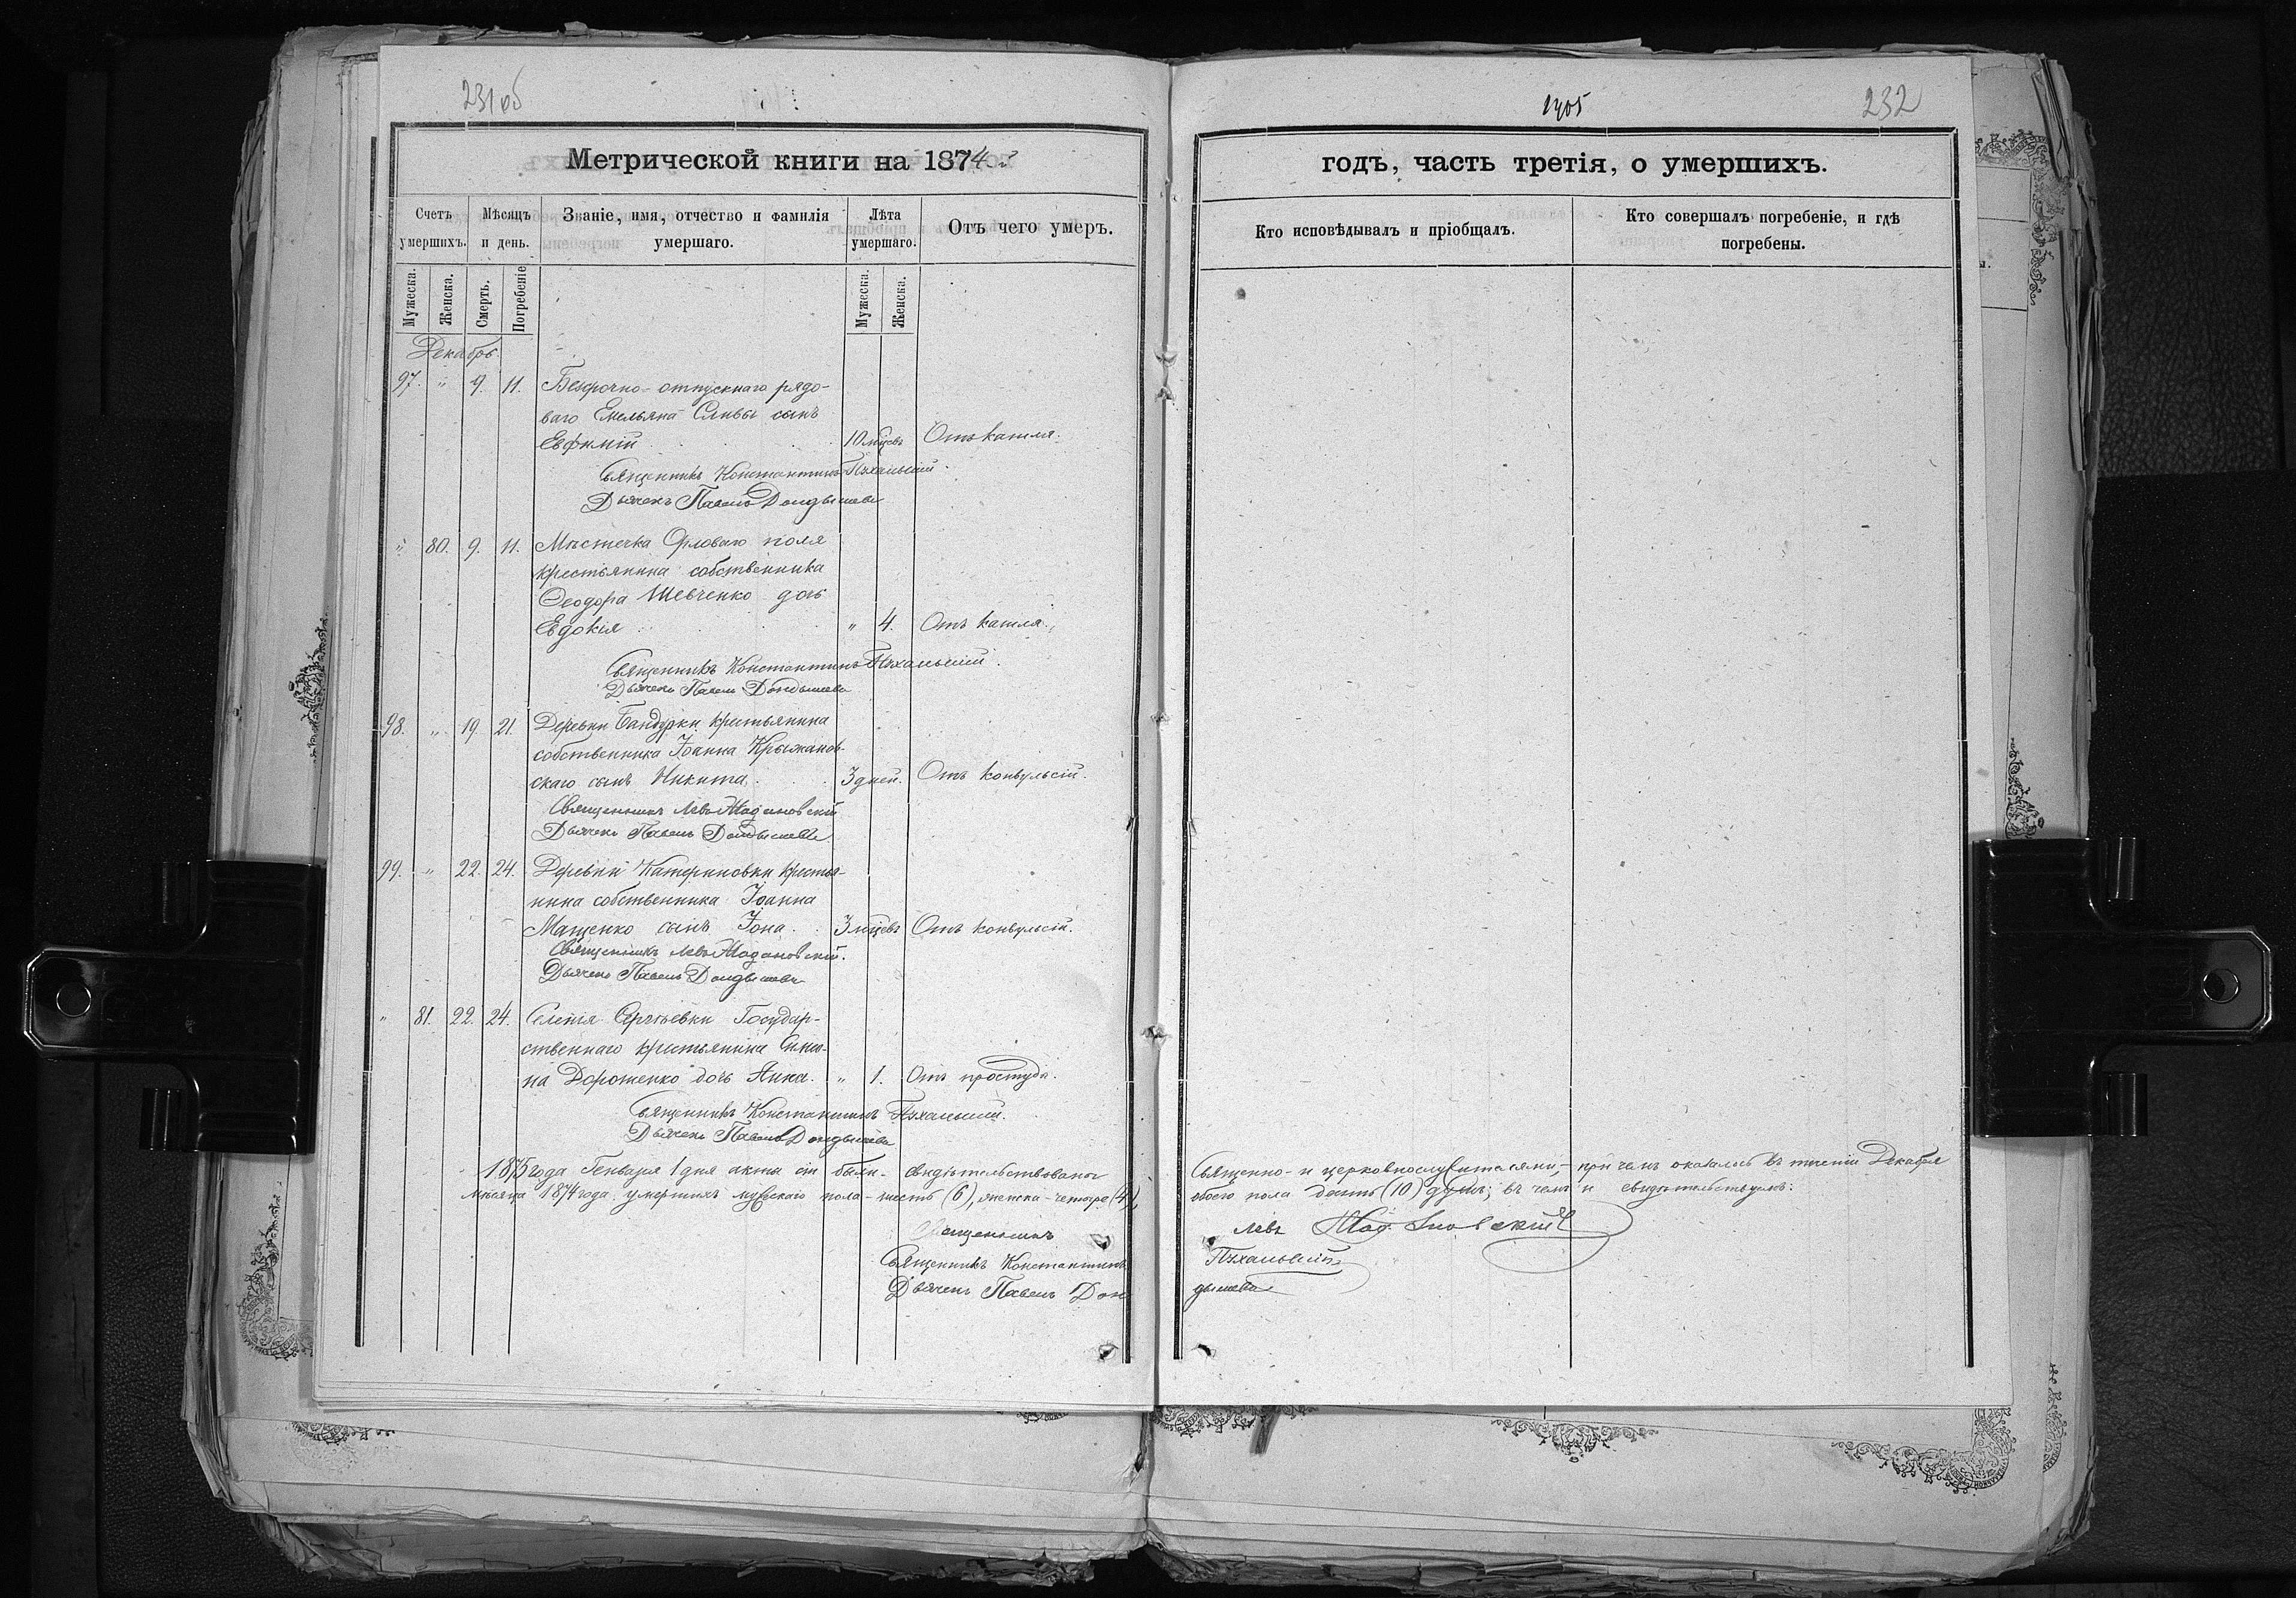 231об
1405
232
Метрической книги на 1874й
годъ, часть третія, о умершихъ.
Счетъ умершихъ.
Мѣсяцъ и день.
Званіе, имя, отчество и фамилія умершаго.
Лѣта умершаго.
Отъ чего умеръ.
Кто исповѣдывалъ и пріобщалъ.
Кто совершалъ погребеніе, и гдѣ погребены.
Мужеска.
Женска.
Смерть.
Погребеніе
Мужеска.
Женска.
Декабрь.
97. " 9. 11. Безсрочно-отпускнаго рядо-
ваго Емельяна Сливы сынъ
Евфимій 10 мцевъ Отъ кашля.
Священникъ Константинъ Пухальскій.
Дьячекъ Павелъ
" 80. 9. 11. Мѣстечка Орловаго поля
крестьянина собственника
Ѳеодора Шевченко дочь
Евдокія " 4. Отъ кашля.
Священникъ Константинъ Пухальскій.
Дьячекъ Павелъ
98. " 19. 21. Деревни Бандурки крестьянина
собственника Іоанна Крыжанов-
скаго сынъ Никита. 3 дней. Отъ конвульсій.
Священникъ Левъ
Дьячекъ Павелъ
99. " 22. 24. Деревни Катериновки крестья-
нина собственника Іоанна
Мащенко сынъ Іона. 3 мцевъ Отъ конвульсій.
Священникъ Левъ
Дьячекъ Павелъ
" 81. 22. 24. Селенія Сергіевки Государ-
ственнаго крестьянина Симо-
на Дорошенко дочь Анна. " 1. Отъ простуды.
Священникъ Константинъ Пухальскій.
Дьячекъ Павелъ
1875 года Генваря 1 дня акты сіи были свидѣтельствованы Священно- и церковнослужителями, при чемъ оказалось въ теченіи Декабря
мѣсяца 1874 года умершихъ мужскаго пола - шесть (6), женска - четыре (4), обоего пола десять (10) душъ; въ чемъ и свидѣтельствуемъ:
Священникъ Левъ
Священникъ Константинъ Пухальскій
Дьячекъ Павелъ